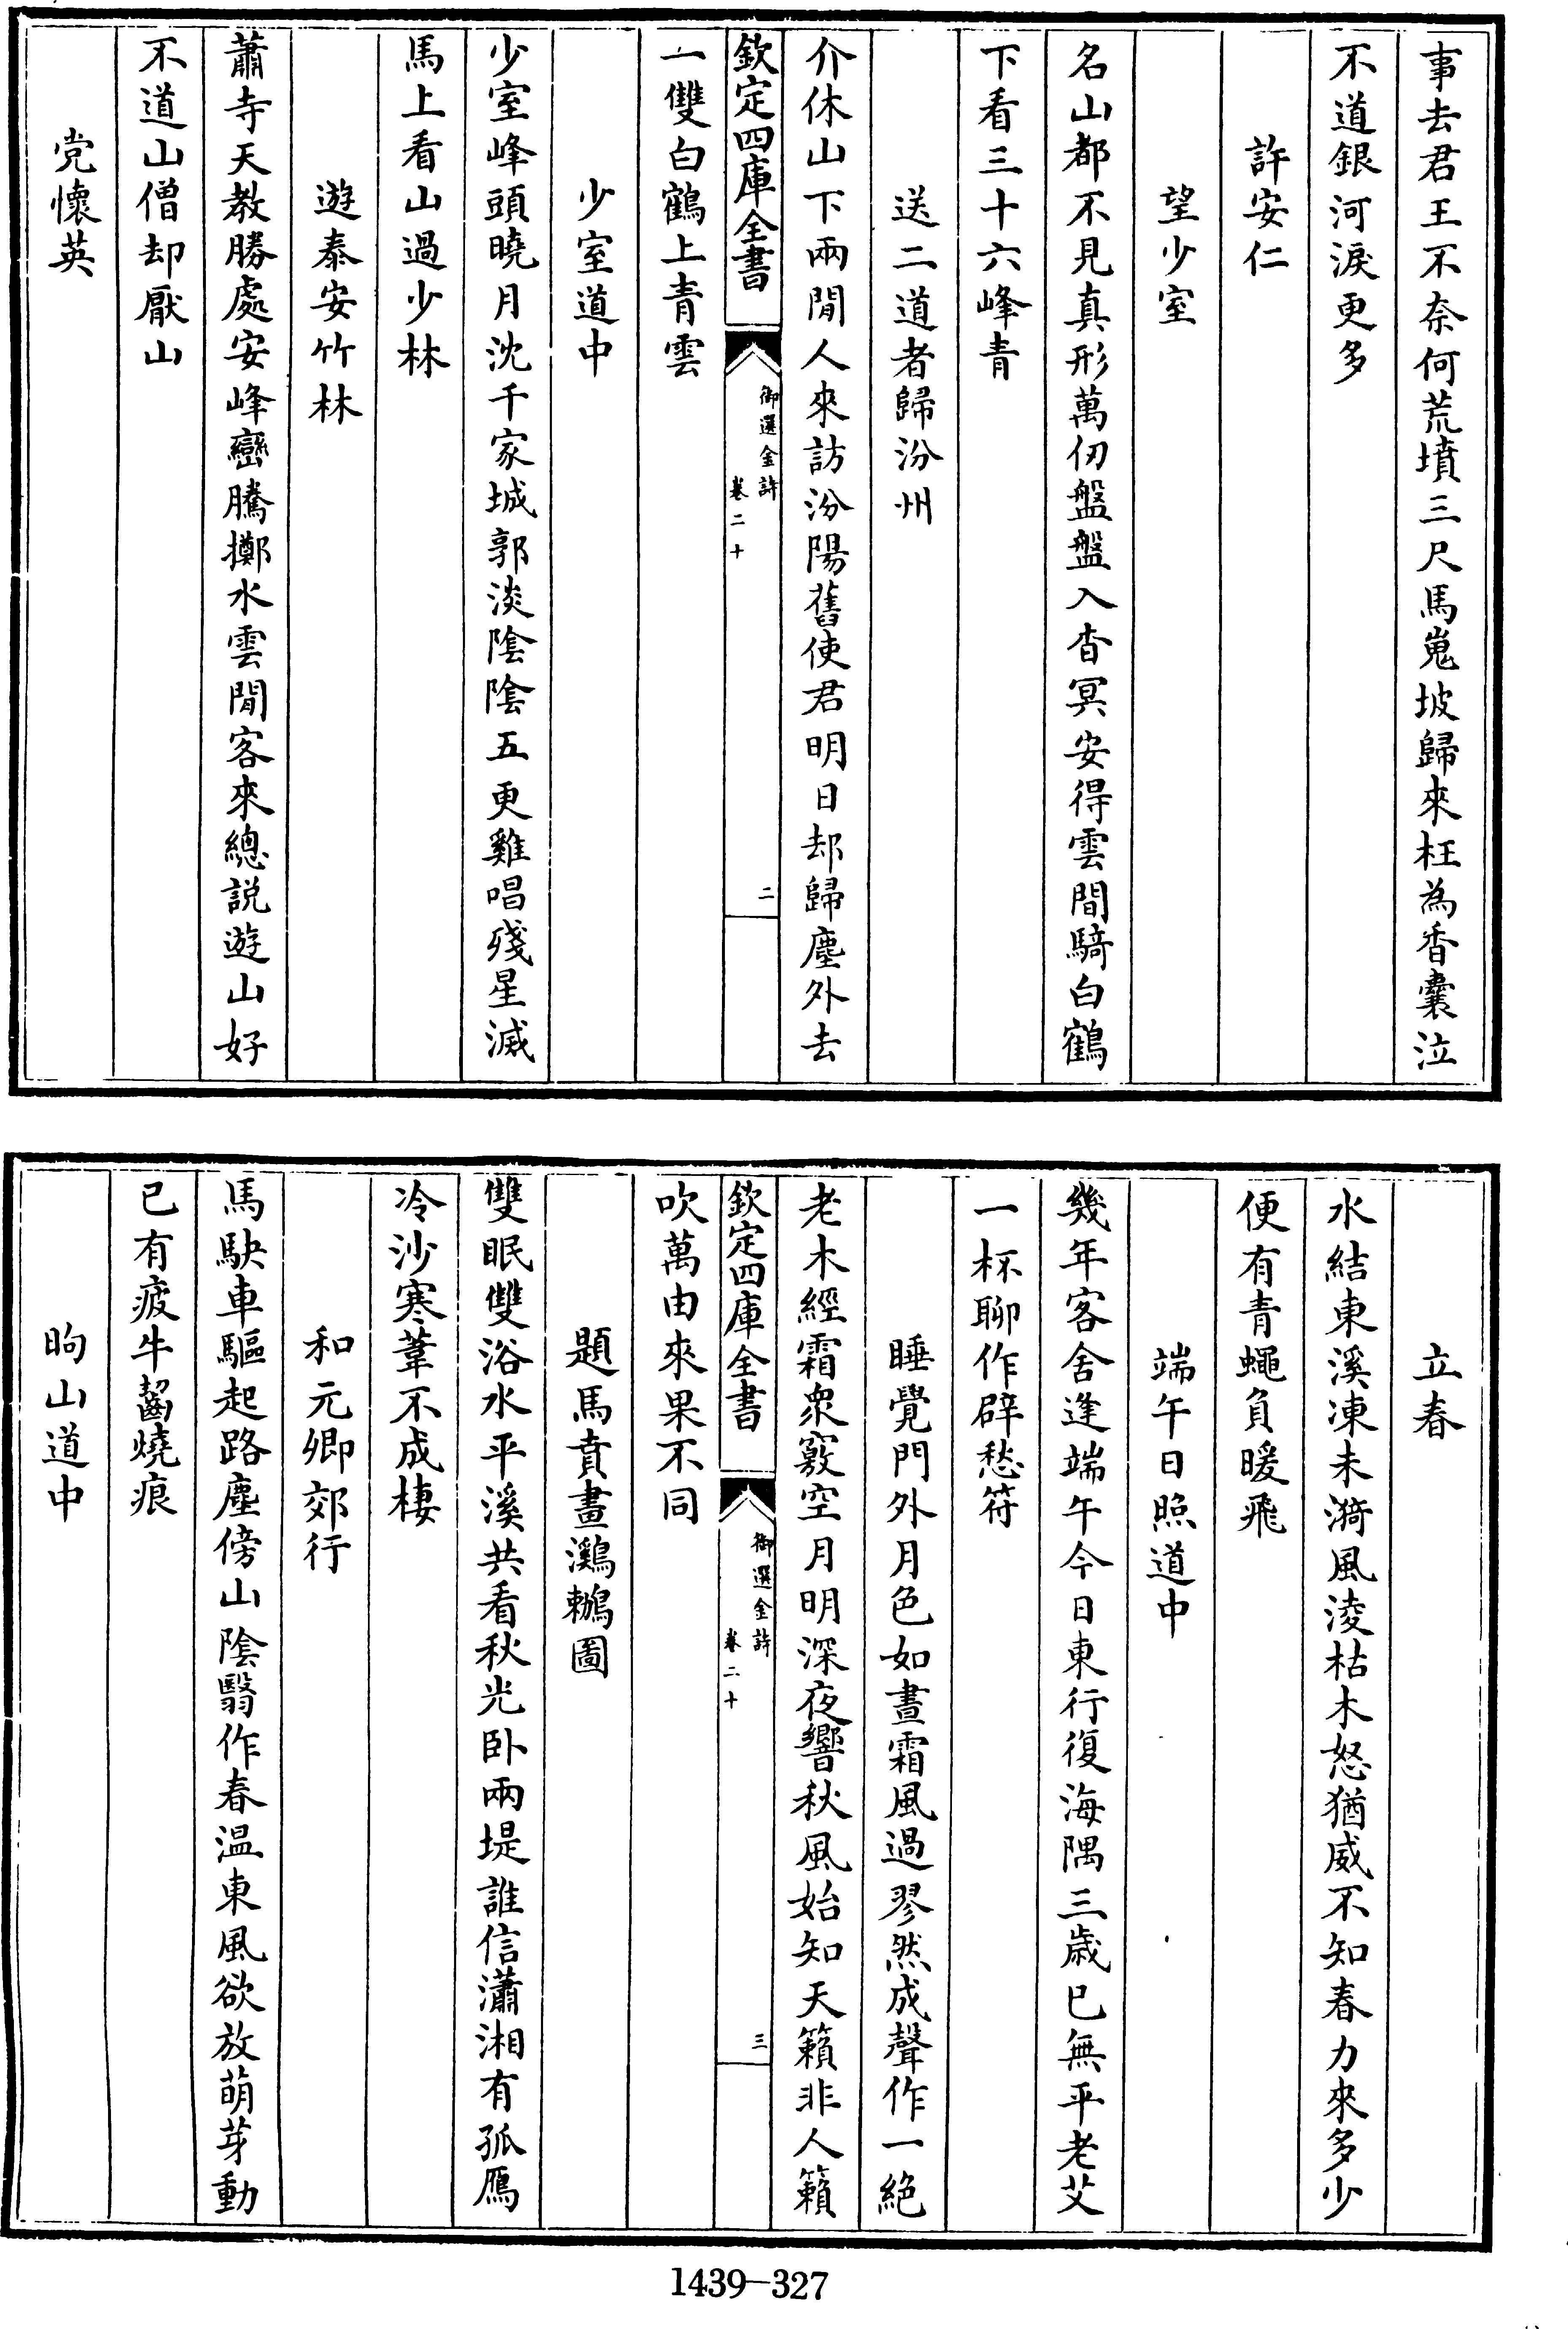 事去君王不奈何荒墳三尺馬嵬坡歸來枉為香囊泣
不道銀河淚更多
許安仁
望少室
名山都不見真形萬仞盤盤入杳冥安得雲間騎白鶴
下看三十六峰青
送二道者歸汾州
介休山下兩閒人來訪汾陽舊使君明日却歸塵外去
欽定四庫全書
御選金詩
卷二十
二
一雙白鶴上青雲
少室道中
少室峰頭曉月沈千家城郭淡陰陰五更雞唱殘星滅
馬上看山過少林
遊泰安竹林
蕭寺天教勝處安峰巒騰擲水雲閒客來總説遊山好
不道山僧却厭山
党懷英
立春
水結東溪凍未漪風淩枯木怒猶威不知春力來多少
便有青蠅負暖飛
端午日照道中
幾年客舍逢端午今日東行復海隅三歲已無平老艾
一杯聊作辟愁符
睡覺門外月色如晝霜風過翏然成聲作一絶
老木經霜衆竅空月明深夜響秋風始知天籟非人籟
欽定四庫全書
御選金詩
卷二十
三
吹萬由來果不同
題馬賁畫鸂鶒圖
雙眠雙浴水平溪共看秋光卧兩堤誰信瀟湘有孤鴈
冷沙寒葦不成棲
和元卿郊行
馬駃車驅起路塵傍山陰翳作春温東風欲放萌芽動
已有疲牛齧燒痕
昫山道中
1439—327